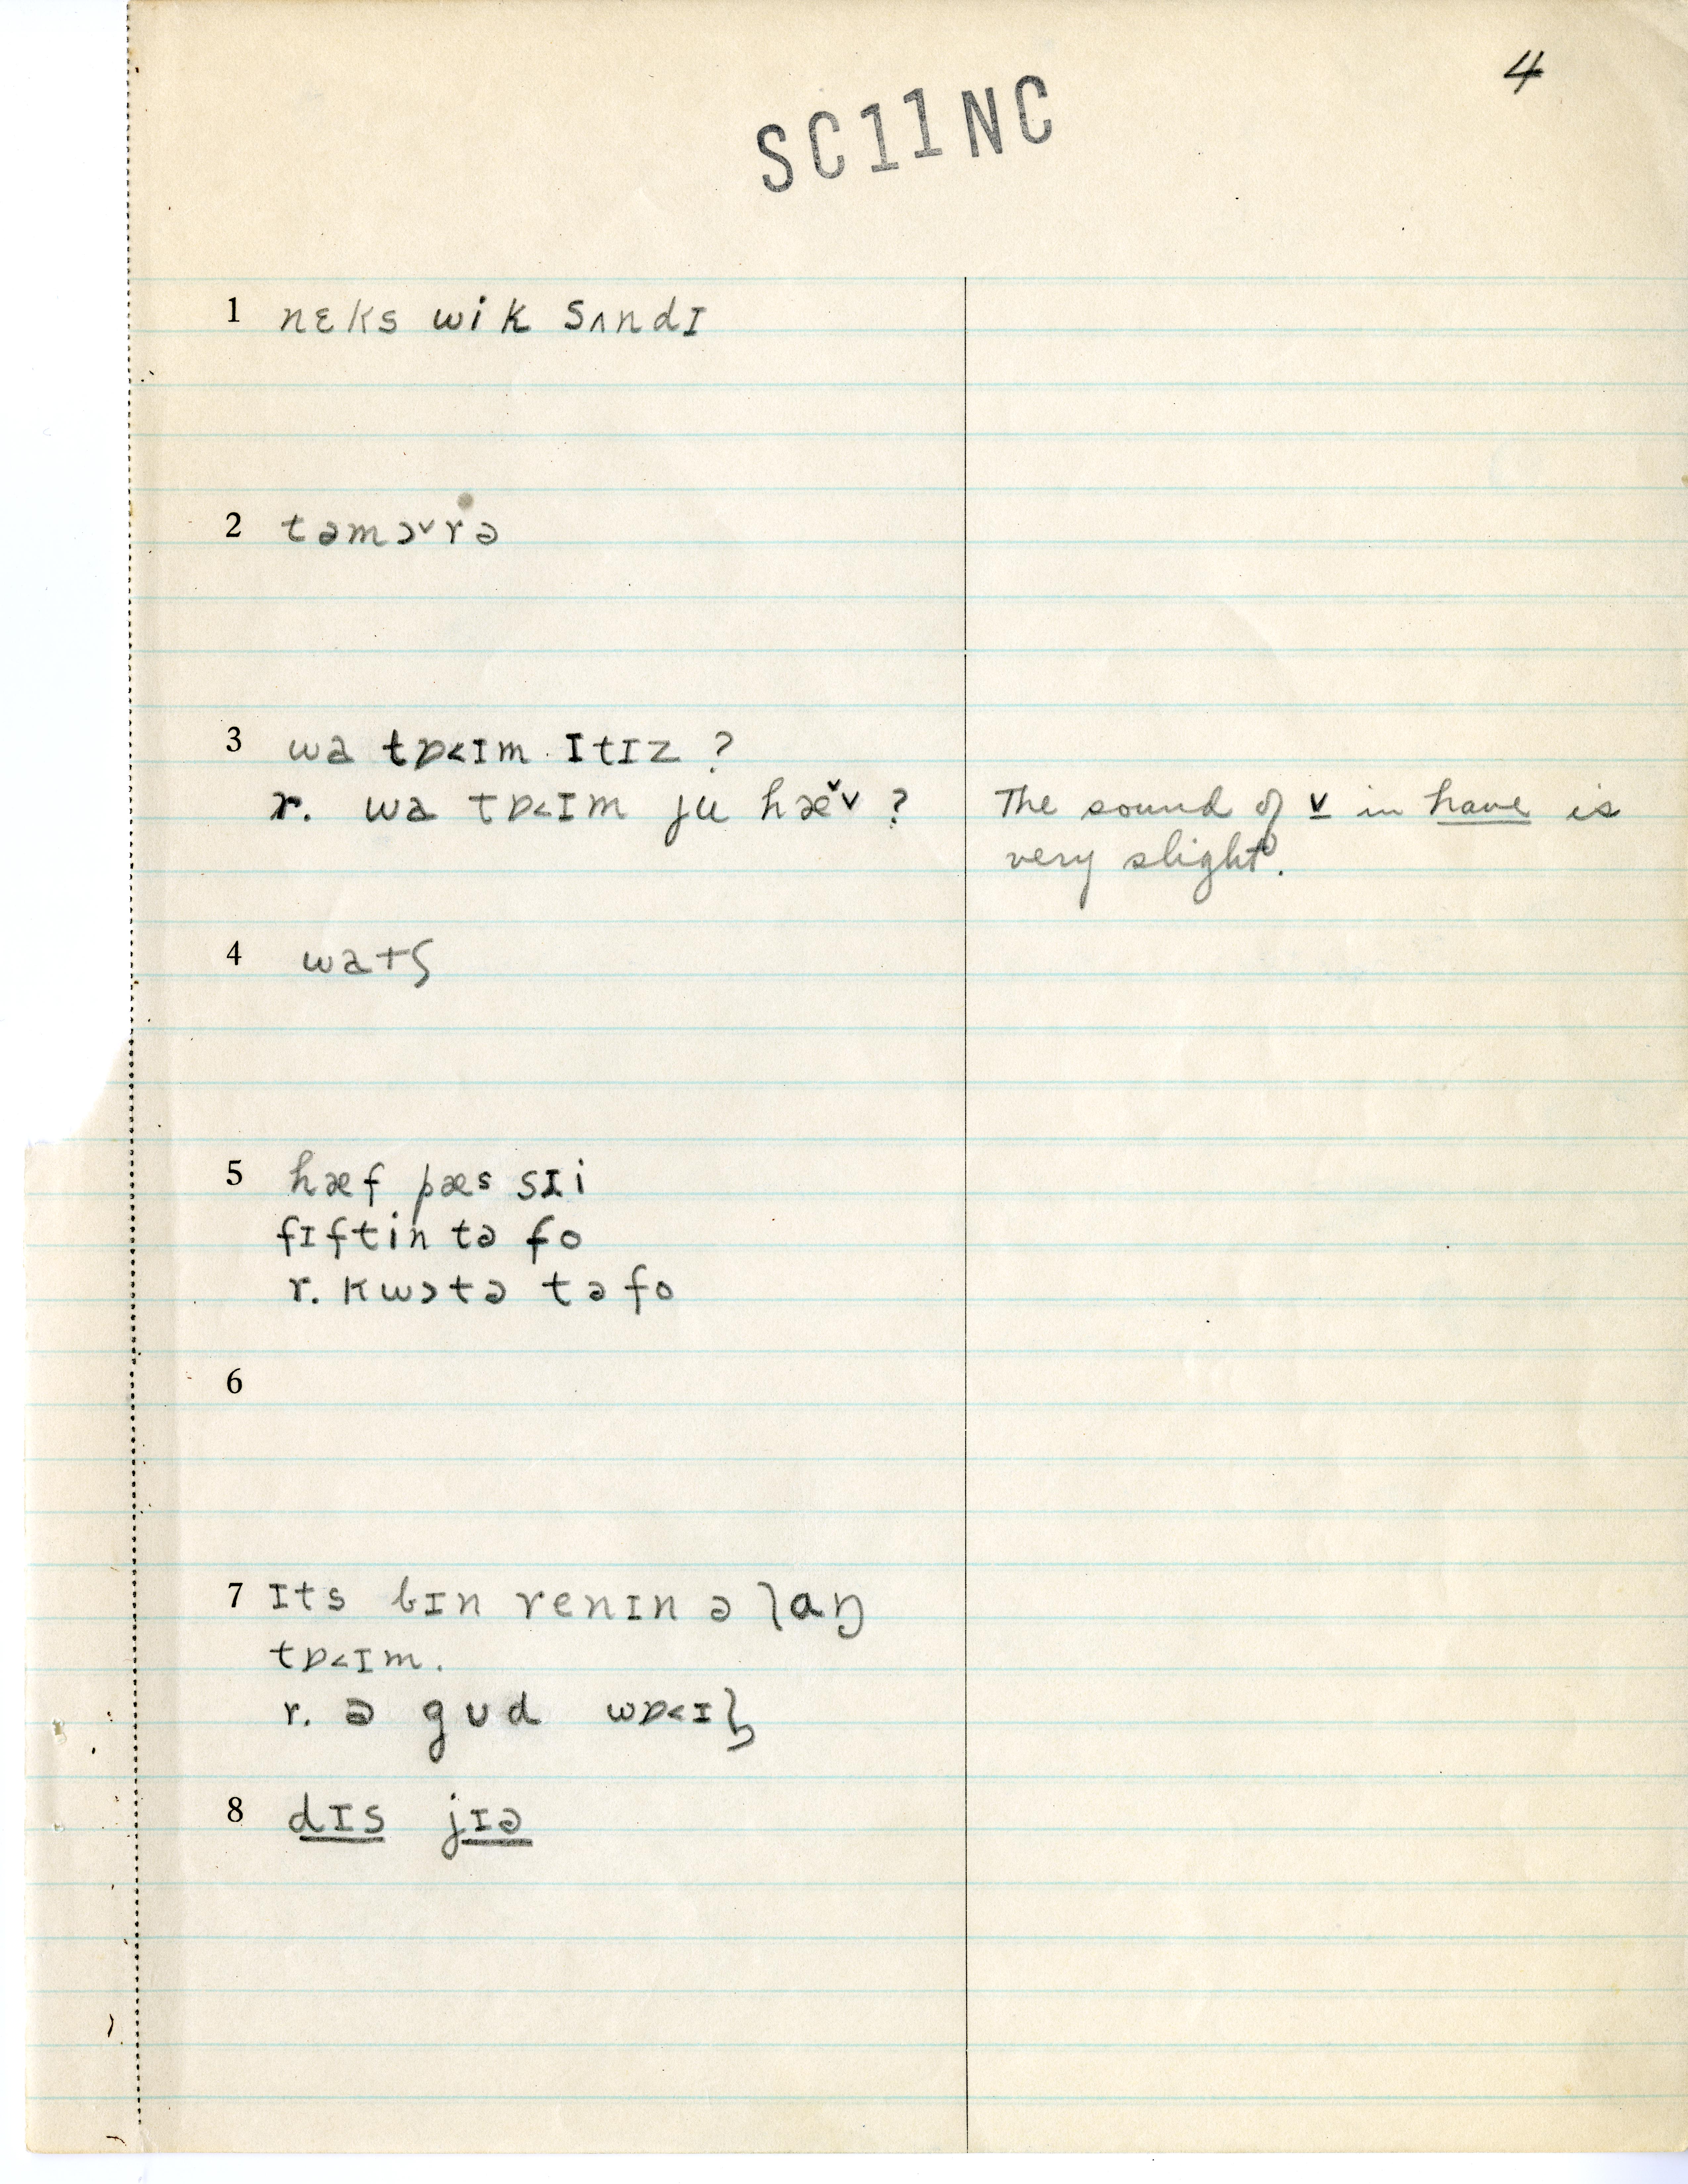 4
SC11NC
1 nɛks wik sʌndɪ
2 təmɔ˅rə
3 wa tɒ<ɪm ɪtɪz ?
r. wa tɒ<ɪm ju hæ˅v ?
The sound of v in have is
very slight.
4 watʃ
5 hæf pæs sɪi
fɪftin tə fo
r. kwɔtə tə fo
6
7 ɪts bɪn renɪn ə laŋ
tɒ<ɪm.
r. ə gud wɒ<ɪɫ
8 dɪs jɪə